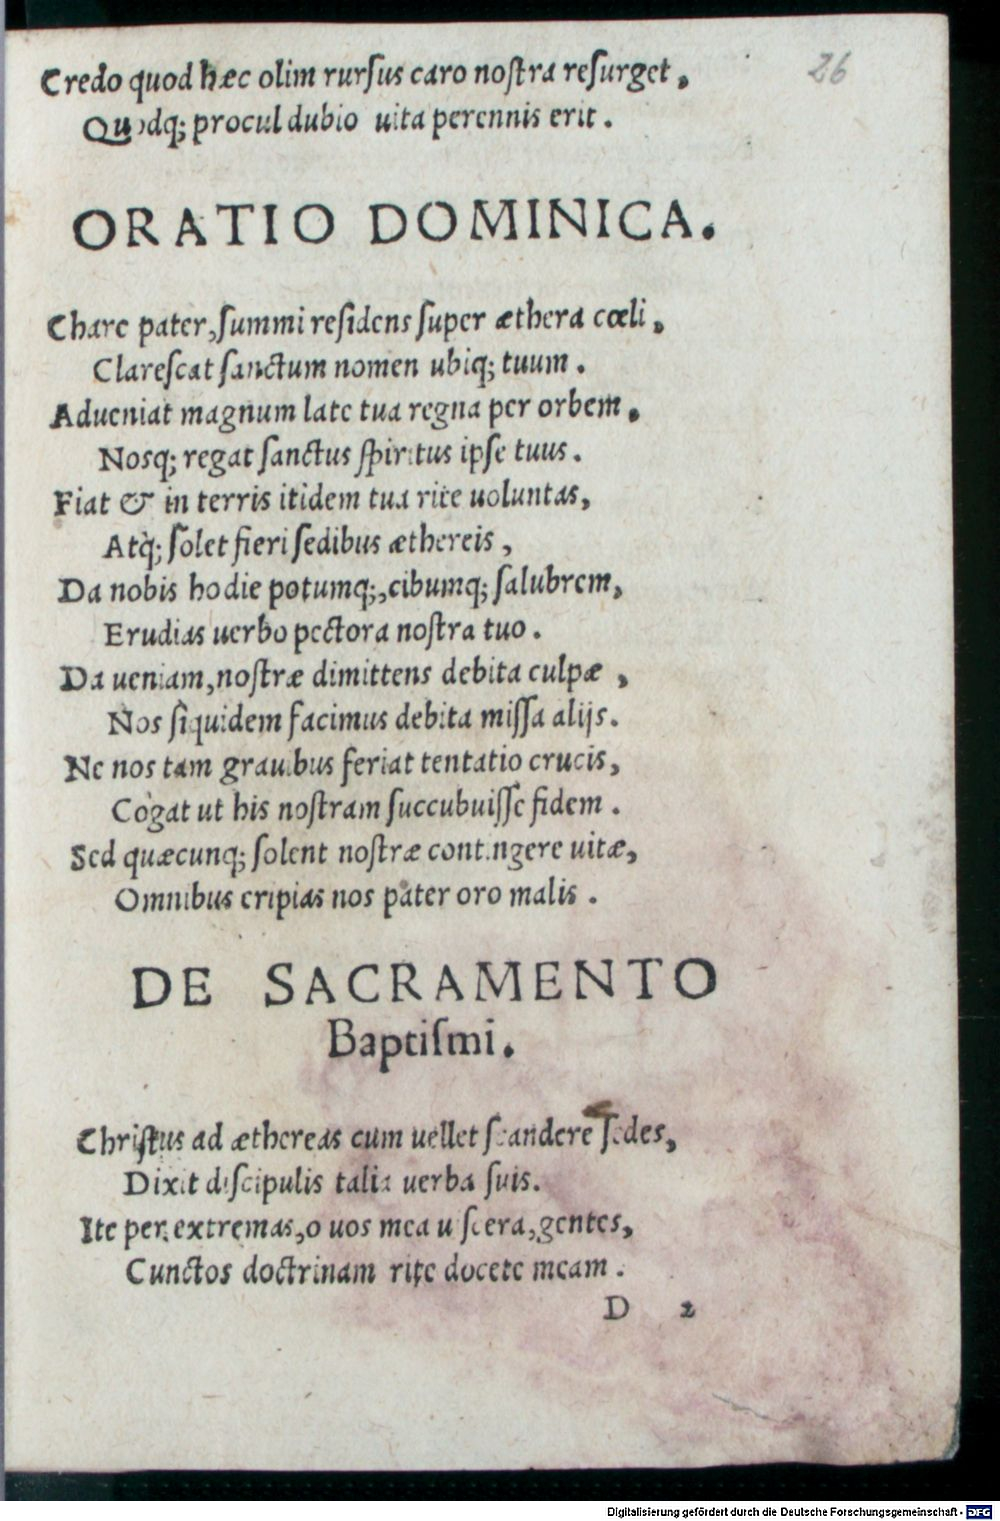 26
Credo quod hæc olim rurſus caro noſtra reſurget,
Quodq; procul dubio uita perennis erit.
ORATIO DOMINICA.
Chare pater, ſummi reſidens ſuper æthera cœli,
Clareſcat ſanctum nomen ubiq; tuum.
Adueniat magnum late tua regna per orbem.
Nosq; regat ſanctus ſpiritus ipſe tuus.
Fiat & in terris itidem tua rite uoluntas,
Atq; ſolet fieri ſedibus æthereis,
Da nobis hodie potumq;, cibumq; ſalubrem,
Erudias uerbo pectora noſtra tuo.
Da ueniam, noſtræ dimittens debita culpæ,
Nos ſiquidem facimus debita miſſa alijs.
Ne nos tam grauibus feriat tentatio crucis,
Cogat ut his noſtram ſuccubuiſſe fidem.
Sed quæcunq; ſolent noſtræ contingere uitæ,
Omnibus eripias nos pater oro malis.
DE SACRAMENTO
Baptiſmi.
Chriſtus ad æthereas cum uellet ſcandere ſedes,
Dixit diſcipulis talia uerba ſuis.
Ite per extremas, o uos mea uiſcera, gentes,
Cunctos doctrinam rite docete meam.
D 2
Digitalisierung gefördert durch die Deutsche Forschungsgemeinschaft - DFG